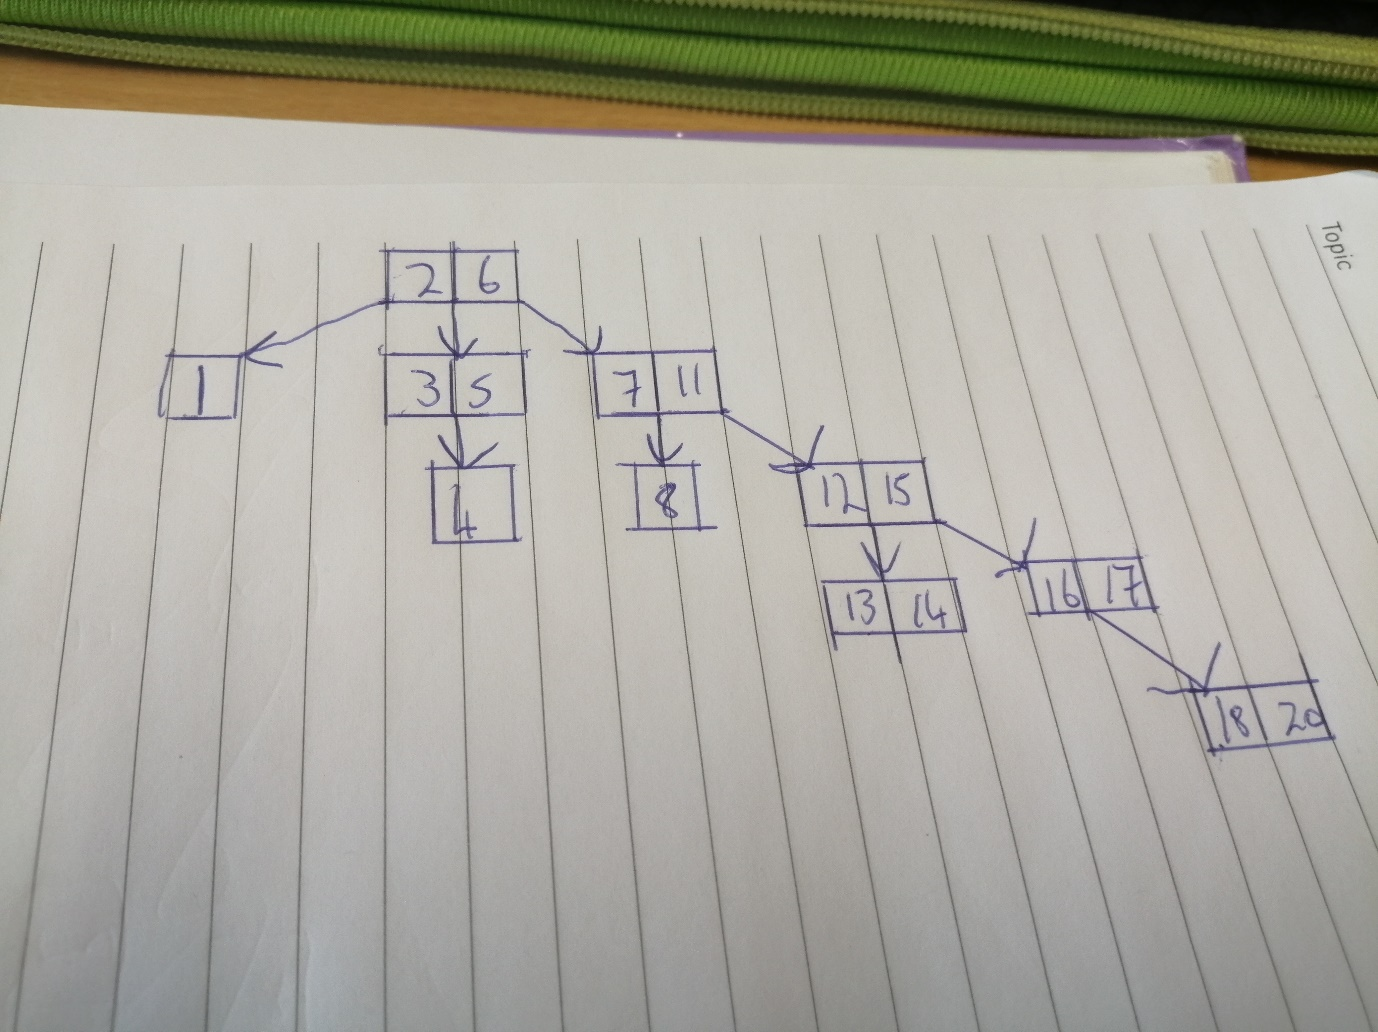 Topic
2 6
1
3 5
7 11
4
8
12 15
13 14
16 17
18 20